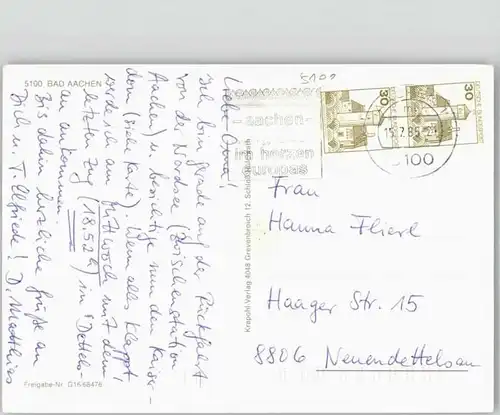 5100 BAD AACHEN
5101
Liebe Oma!
Ich bin grade auf der Rückfahrt
von der Nordsee (Zwischenstation
Aachen) u. besichtige nun den Kaiser-
dom (siehe Karte). Wenn alles klappt,
werde ich am Mittwoch mit dem
letzten Zug (18.52h) in
an ankommen.
Bis dahin herzliche Grüße an
Dich u. T. Elfriede! D. Matthias
Freigabe-Nr. G16/68476
Krapohl-Verlag 4048 Grevenbroich 12, Schloß Hülchrath
aachen
im herzen
europas
30
DEUTSCHE BUNDESPOST
30
DEUTSCHE BUNDESPOST
15.7.85-21
100
Frau
Hanna Flierl
Haager Str. 15
8806 Neuendettelsau